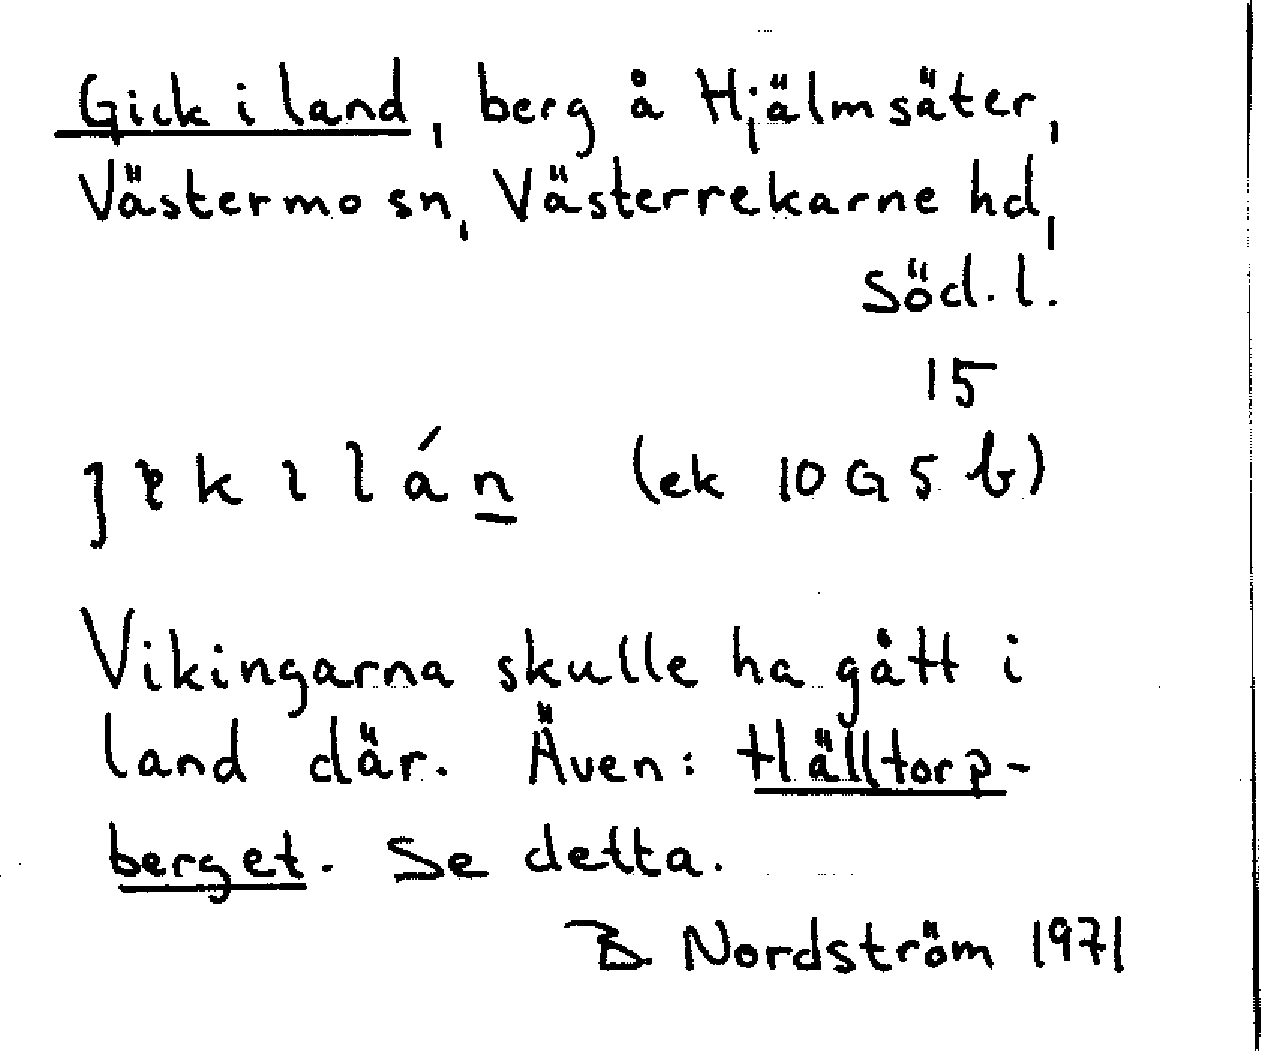 Gick i land, berg å Hjälmsäter,
Västermo sn, Västerrekarne hd,
Söd. l.
15
(ek 10 G 5 b)
Vikingarna skulle ha gått i
land där. Även: Hälltorp-
berget. Se detta.
B Nordström 1971